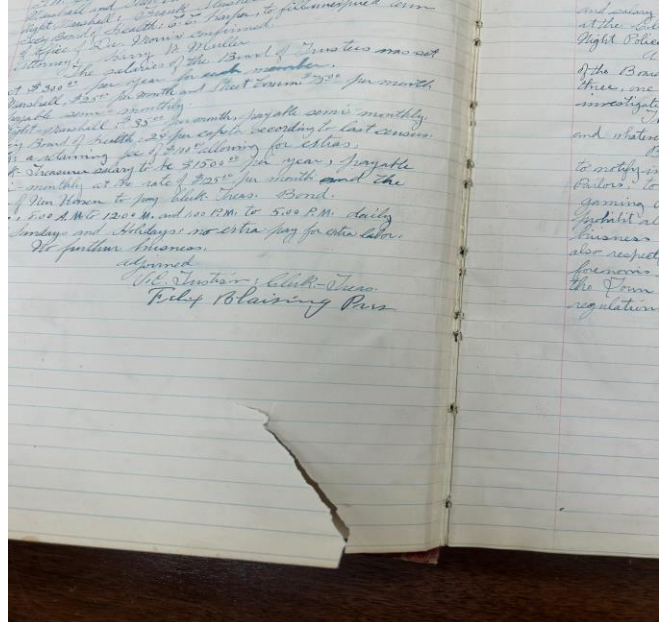 Marshall and
Night Marshall:
Board of Health: to fill unexpired term
office of Dr. confirmed
Attorney: Muller
The salaries of the Board of Trustees was set
at $300.00 per year for each member.
Marshall, $25.00 per month and Street Comm. $75.00 per month
payable semi monthly
Night Marshall, $85.00 per month, payable semi monthly.
Board of health, 2¢ per capita according to last census.
a returning fee of allowing for extras.
Treasurer salary to be $1500.00 per year, payable
monthly at the rate of $125.00 per month and the
of New Haven to pay Clerk Treas. Bond.
A.M. to 12:00 M. and 1:00 P.M. to 5:00 P.M. daily
Sundays and Holidays: no extra pay for extra labor.
No further business.
adjorned
V.E. Clerk-Treas.
Felix Blaising Pres
and salary
at the
Night Police
of the Board
three, one
investigate
and whatever
to notify
Parlors, to
gaming
prohibit al
business
also respect
the Town
regulation